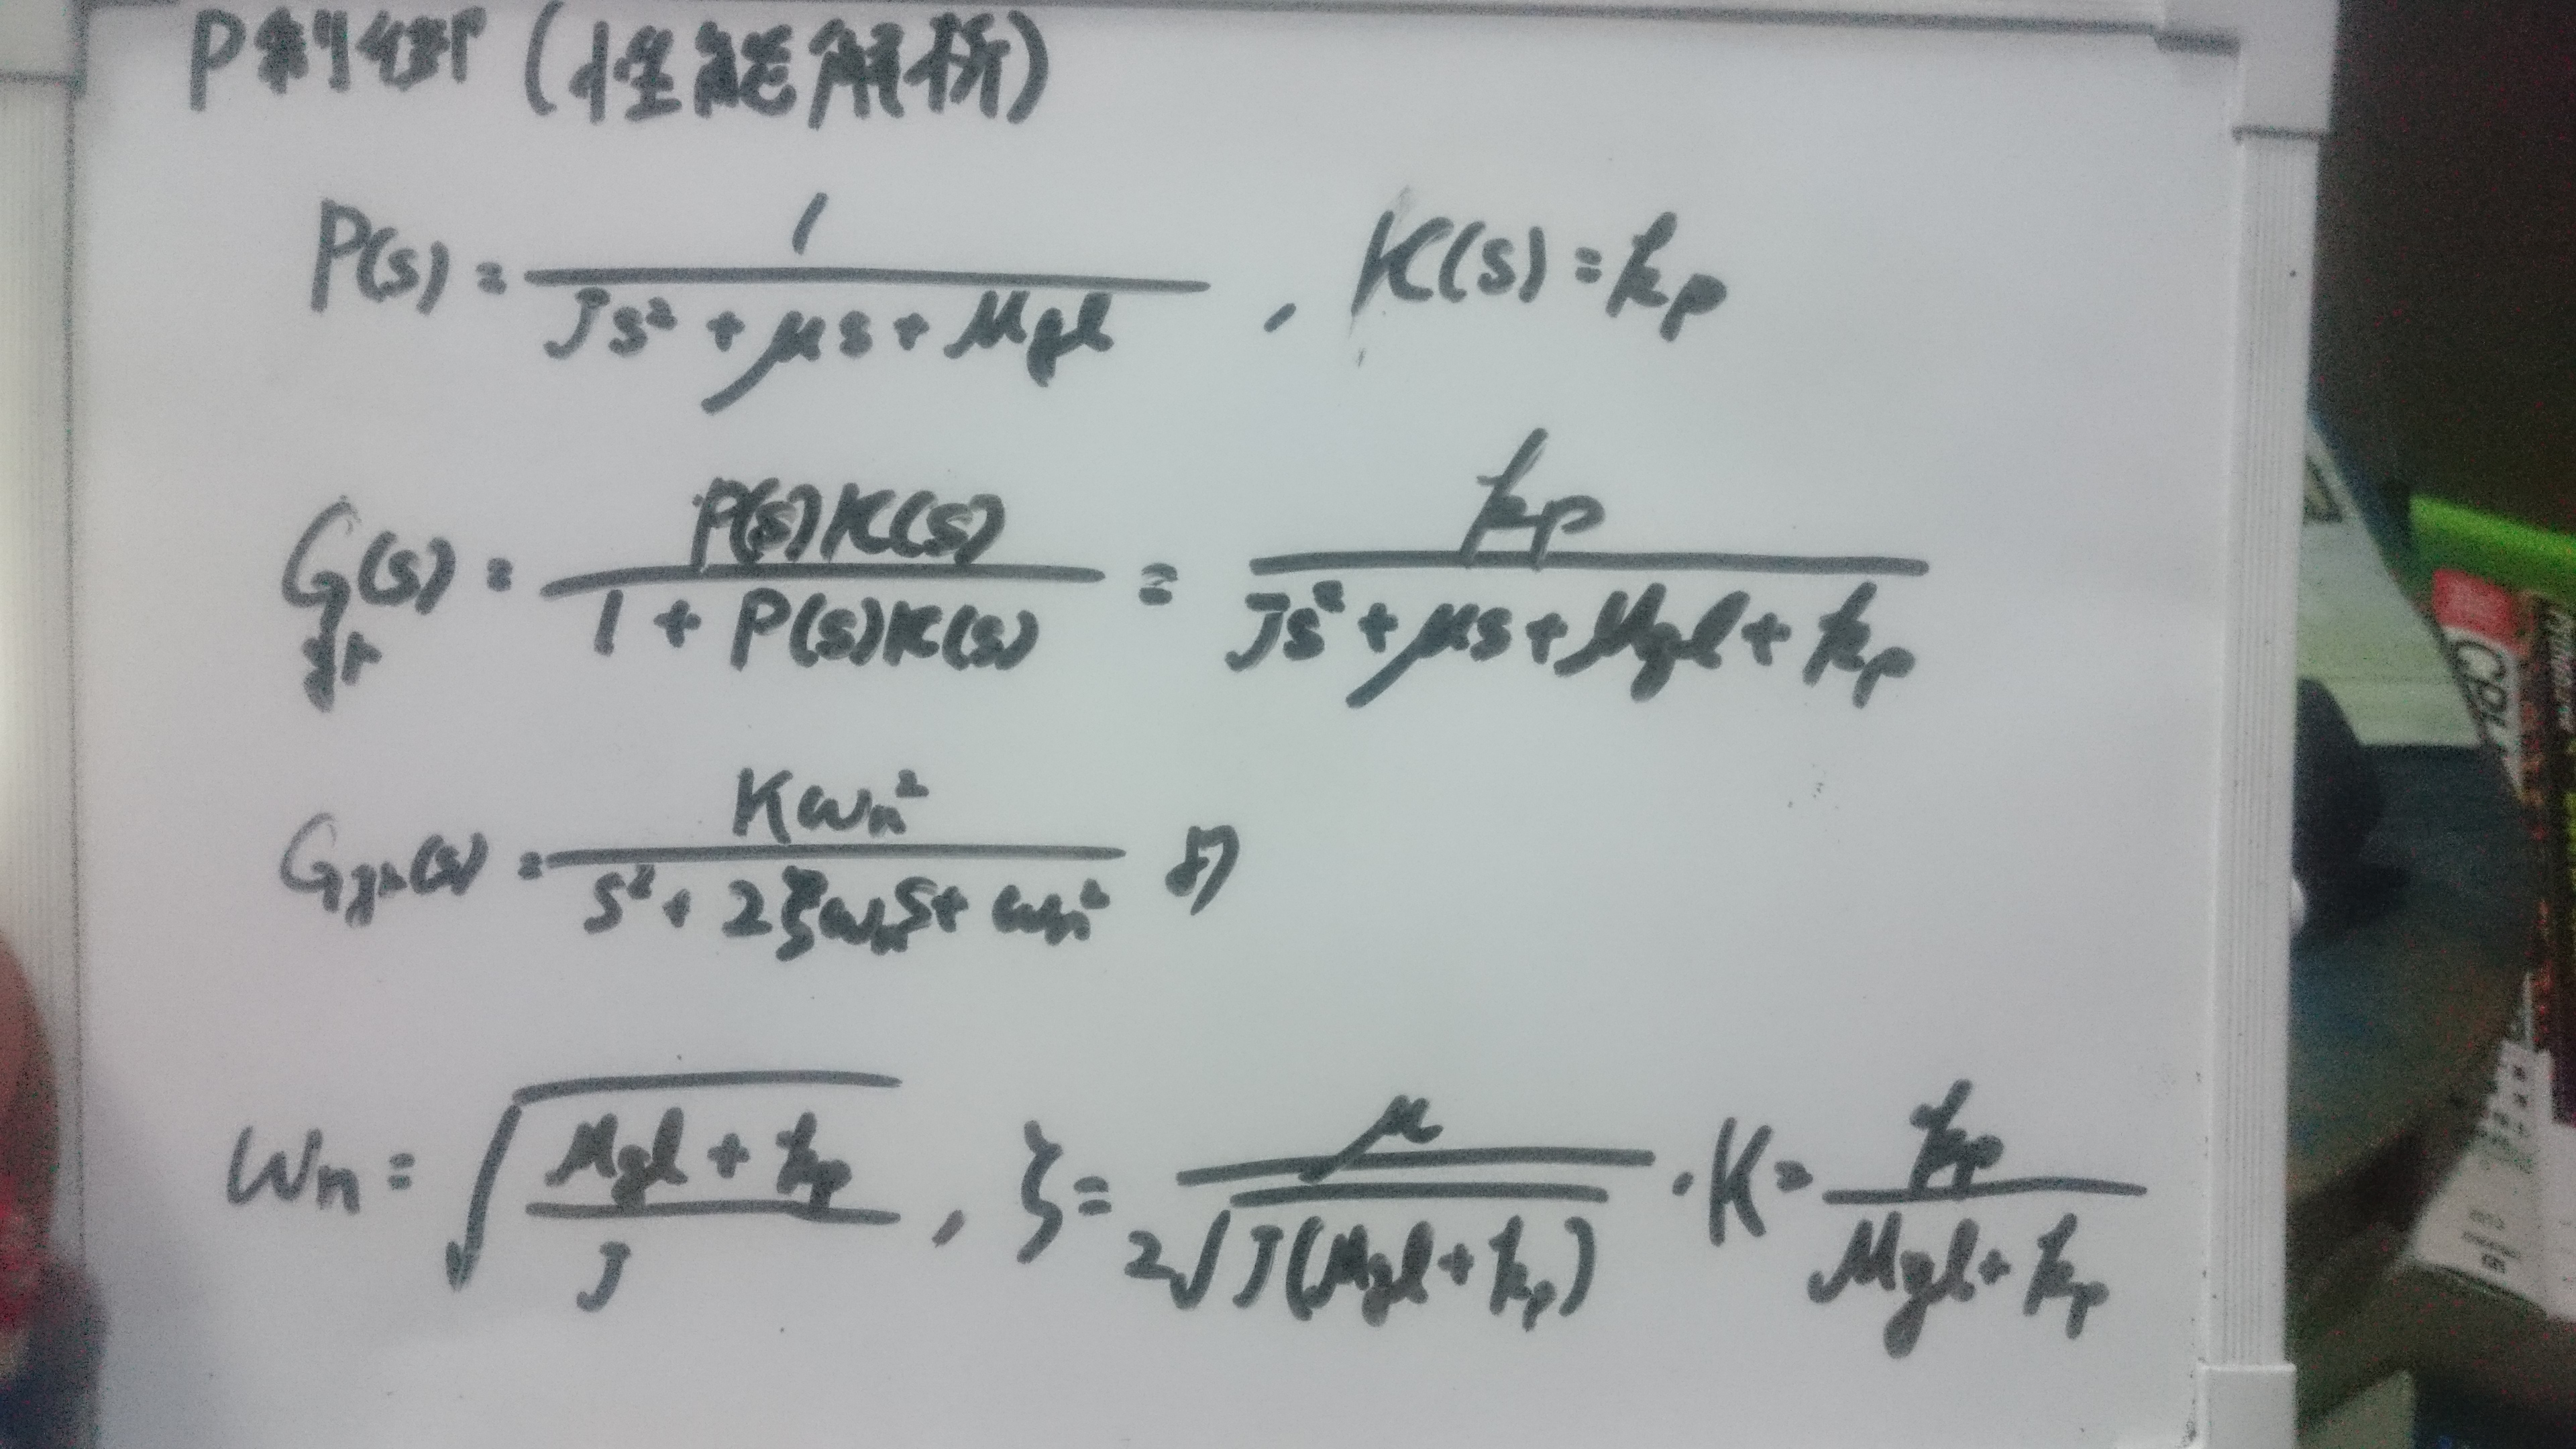 P制御(性能解析)
P(s) = 1 / (Js² + μs + Mgl) , K(s) = kp
Gyr(s) = P(s)K(s) / (1 + P(s)K(s)) = kp / (Js² + μs + Mgl + kp)
Gyr(s) = Kωn² / (s² + 2ζωns + ωn²) より
ωn = √((Mgl + kp) / J) , ζ = μ / (2√(J(Mgl + kp))) . K = kp / (Mgl + kp)